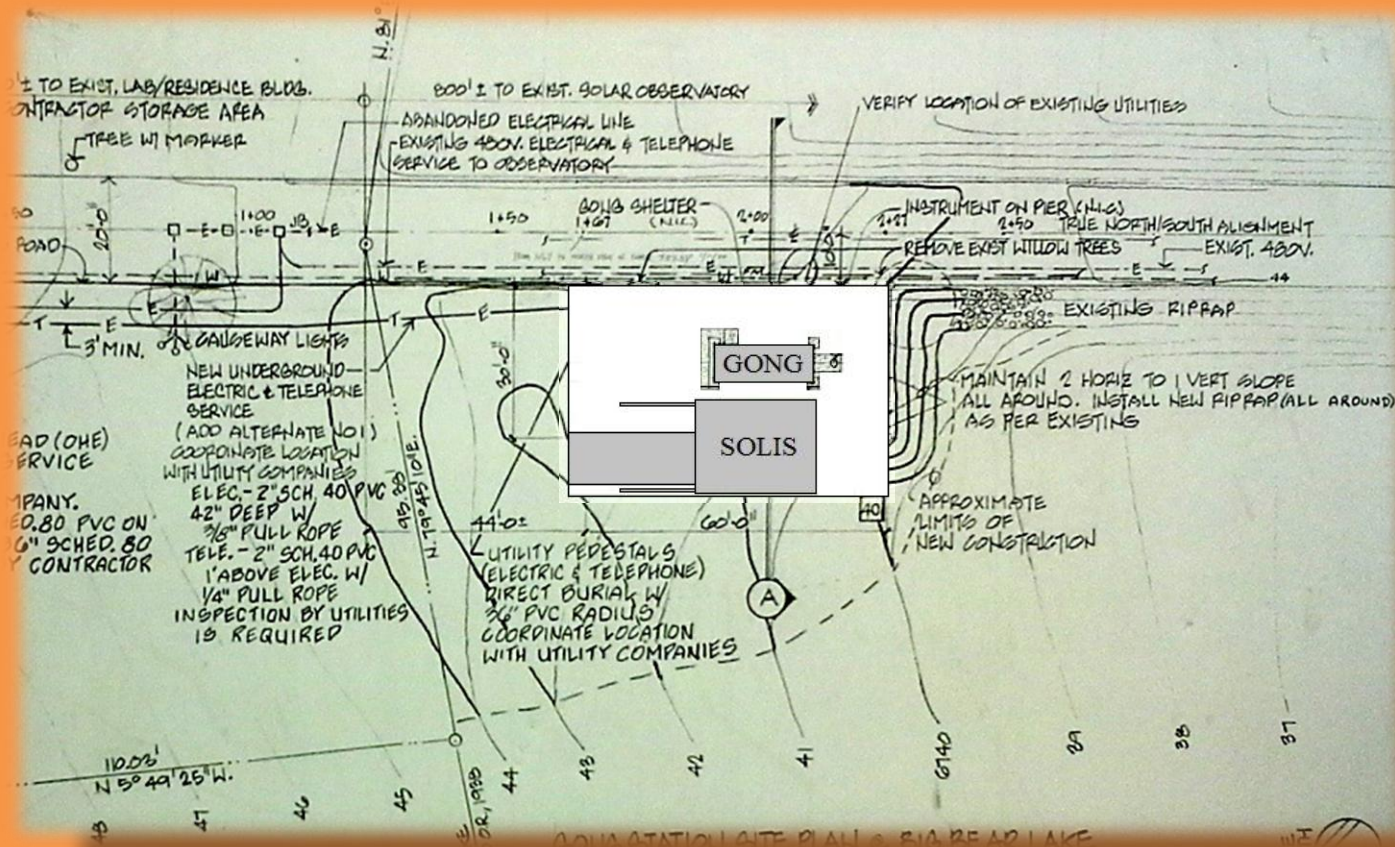 N. 81°
'± TO EXIST. LAB/RESIDENCE BLDG.
ONTRACTOR STORAGE AREA
TREE W/ MARKER
800'± TO EXIST. SOLAR OBSERVATORY
ABANDONED ELECTRICAL LINE
EXISTING 480V. ELECTRICAL & TELEPHONE
SERVICE TO OBSERVATORY
VERIFY LOCATION OF EXISTING UTILITIES
20'-0"
ROAD
1+00
JB
E
E
E
W
1+50
GONG SHELTER
(N.I.C.)
1+67
2+00
2+27
INSTRUMENT ON PIER (N.I.C.)
2+50
TRUE NORTH/SOUTH ALIGNMENT
REMOVE EXIST WILLOW TREES
EXIST. 480V.
44
E
T
E
T
E
E
3' MIN.
CAUSEWAY LIGHTS
EXISTING RIPRAP
GONG
SOLIS
30'-0"
NEW UNDERGROUND
ELECTRIC & TELEPHONE
SERVICE
(ADD ALTERNATE NO 1)
COORDINATE LOCATION
WITH UTILITY COMPANIES
ELEC.- 2" SCH. 40 PVC
42" DEEP W/
3/8" PULL ROPE
TELE.- 2" SCH. 40 PVC
1' ABOVE ELEC. W/
1/4" PULL ROPE
INSPECTION BY UTILITIES
IS REQUIRED
EAD (OHE)
SERVICE
MPANY.
ED. 80 PVC ON
36" SCHED. 80
Y CONTRACTOR
MAINTAIN 2 HORIZ TO 1 VERT SLOPE
ALL AROUND. INSTALL NEW RIPRAP (ALL AROUND)
AS PER EXISTING
40
APPROXIMATE
LIMITS OF
NEW CONSTRUCTION
44'-0±
60'-0"
UTILITY PEDESTALS
(ELECTRIC & TELEPHONE)
DIRECT BURIAL W/
36" PVC RADIUS
COORDINATE LOCATION
WITH UTILITY COMPANIES
A
95.88'
110.03'
N 5° 49' 25" W.
48
47
46
45
44
43
42
41
6140
39
38
37
GONG STATION SITE PLAN @ BIG BEAR LAKE